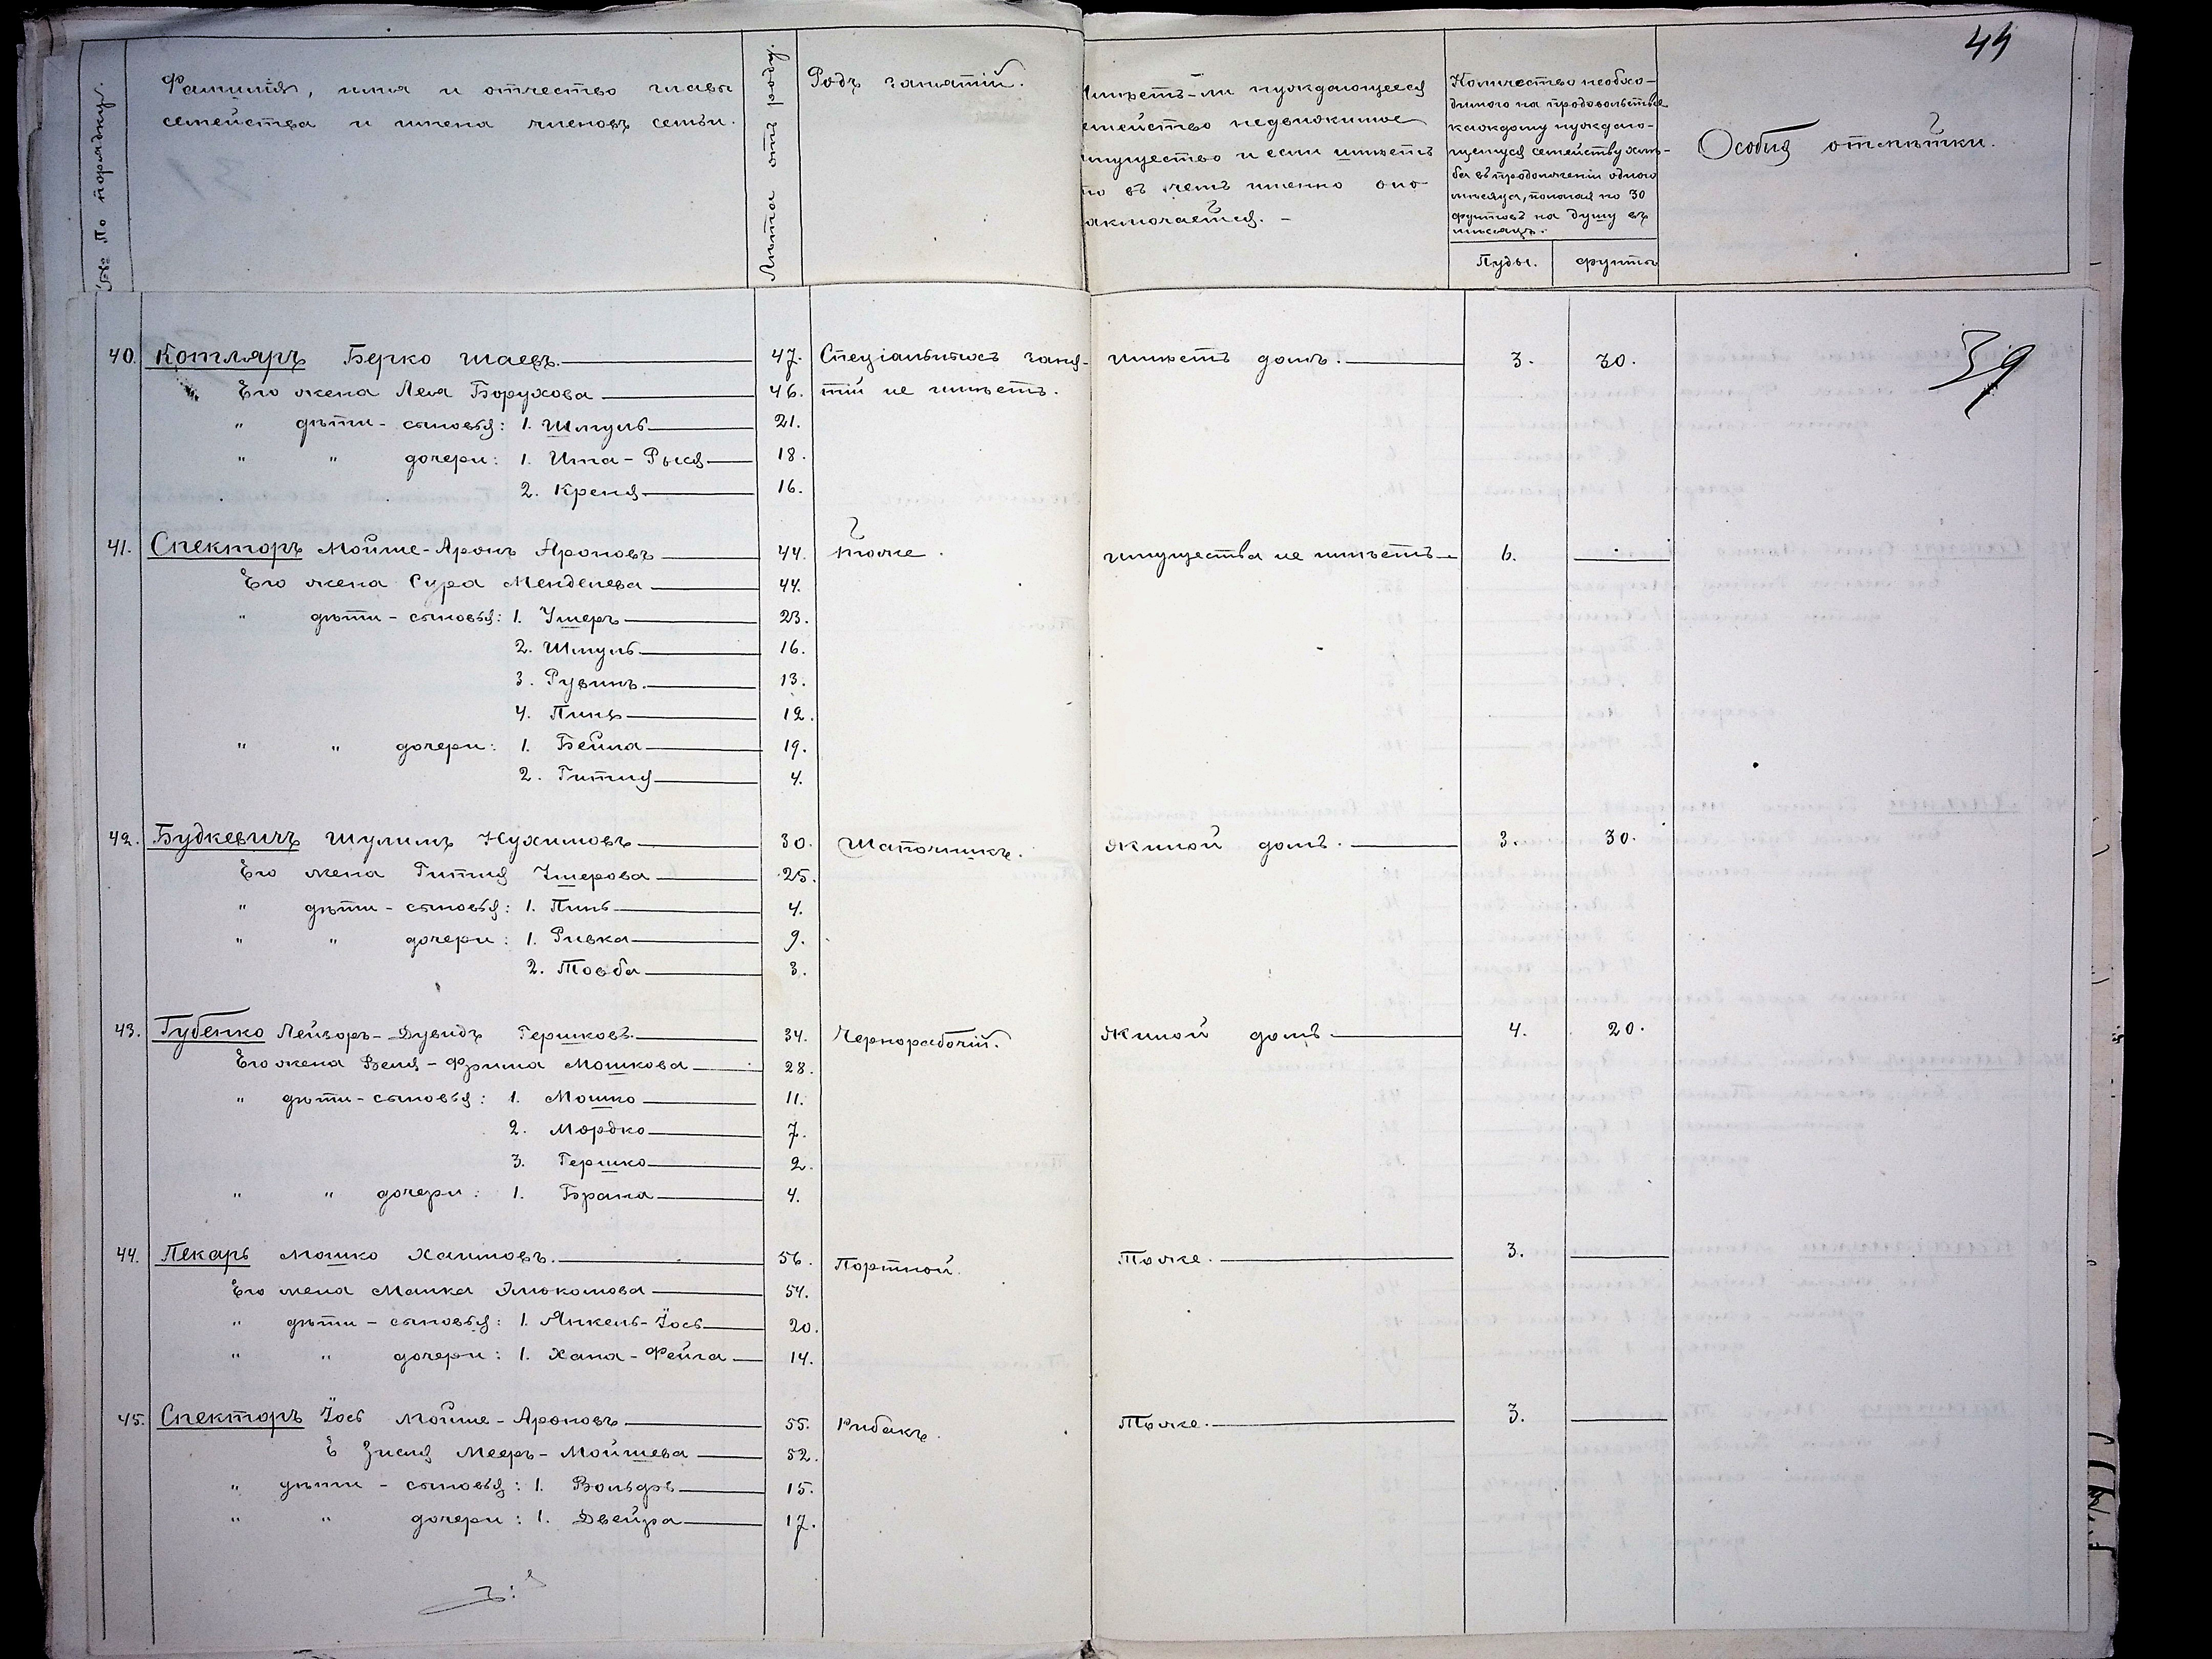 44
№№ По порядку.
Фамилія, имя и отчество главы
семейства и имена членовъ семьи.
Лѣта отъ роду.
Родъ занятій.
Имѣетъ-ли нуждающееся
семейство недвижимое
имущество и если имѣетъ
то въ чемъ именно оно
заключается. -
Количество необхо-
димаго на продовольствіе
каждому нуждаю-
щемуся семейству хлѣ-
ба въ продолженіи одного
мѣсяца, полагая по 30
фунтовъ на душу въ
мѣсяцъ.
Пуды. Фунты
Особыя отмѣтки.
39
40. Котляръ Берко Шаевъ 47. Спеціальныхъ заня- имѣетъ домъ. 3. 30.
Его жена Лея Борухова 46. тій не имѣетъ.
" дѣти - сыновья: 1. Шмуль 21.
" " дочери: 1. Ита - Рыся 18.
2. Креня 16.
41. Спекторъ Мойше-Аронъ Ароновъ 44. тоже. имущества не имѣетъ 6. —
Его жена Сура Менделева 44.
" дѣти - сыновья: 1. Ушеръ 23.
2. Шмуль 16.
3. Рувинъ. 13.
4. Пинь 12.
" " дочери: 1. Бейла 19.
2. Гитля 4.
42. Будкевичъ Шулимъ Нухимовъ 30. Шапочникъ. Жилой домъ. 3. 30.
Его жена Гитля Ушерова 25.
" дѣти - сыновья: 1. Пинь 4.
" " дочери: 1. Ривка 9.
2. Товба 3.
43. Губенко Лейзоръ-Дувидъ Гершковъ. 34. Чернорабочій. Жилой домъ 4. 20.
Его жена Веля - Фрима Мошкова 28.
" дѣти - сыновья: 1. Мошко 11.
2. Мордко 7.
3. Гершко 2.
" " дочери: 1. Брана 4.
44. Пекарь Мошко Хаимовъ. 56. Портной. Тоже. 3. —
Его жена Малка 54.
" дѣти - сыновья: 1. Янкель-Іось 20.
" " дочери: 1. Хана - Фейга 14.
45. Спекторъ Іось Мойше - Ароновъ 55. Рибакъ. Тоже. 3. —
Е Зисля Мееръ - Мойшева 52.
" дѣти - сыновья: 1. Вольфъ 15.
" " дочери: 1. Двейра 17.